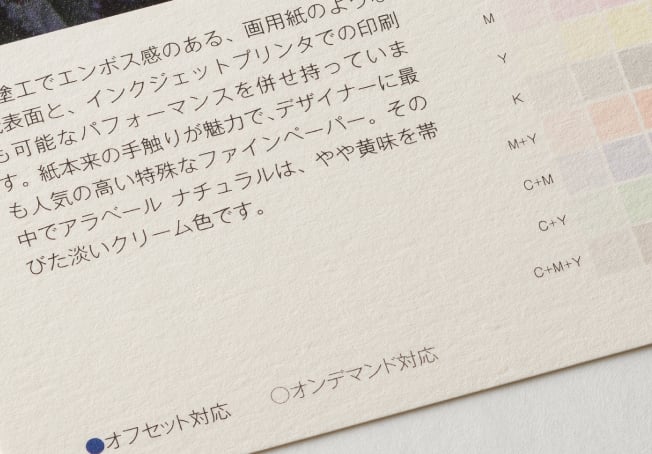 塗工でエンボス感のある、画用紙のような
表面と、インクジェットプリンタでの印刷
も可能なパフォーマンスを併せ持っていま
す。紙本来の手触りが魅力で、デザイナーに最
も人気の高い特殊なファインペーパー。その
中でアラベール ナチュラルは、やや黄味を帯
びた淡いクリーム色です。
M
Y
K
M+Y
C+M
C+Y
C+M+Y
●オフセット対応
○オンデマンド対応